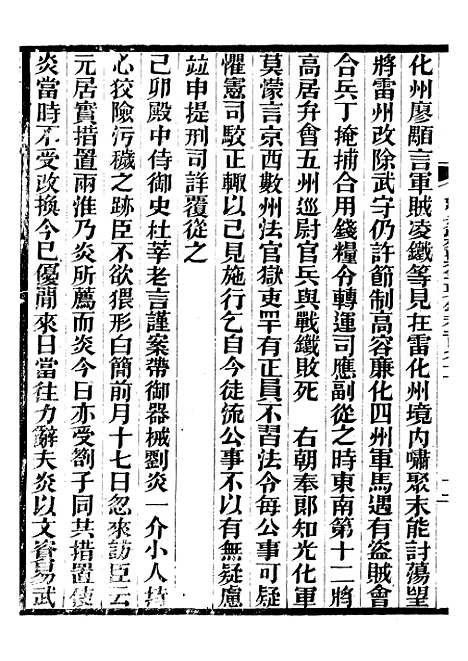 化州廖顒言軍賊凌鐵等見在雷化州境內嘯聚未能討蕩望
將雷州改除武守仍許節制高容廉化四州軍馬遇有盜賊會
合兵丁掩捕合用錢糧令轉運司應副從之時東南第十二將
高居弁會五州巡尉官兵與戰鐵敗死　右朝奉郞知光化軍
莫濛言京西數州法官獄吏罕有正員不習法令每公事可疑
懼憲司駮正輒以己見施行乞自今徒流公事不以有無疑慮
竝申提刑司詳覆從之
己卯殿中侍御史杜莘老言謹案帶御器械劉炎一介小人持
心狡險污穢之跡臣不欲猥形白簡前月十七日忽來訪臣云
元居實措置兩淮乃炎所薦而炎今日亦受劄子同共措置使
炎當時不受改換今已優閒來日當往力辭夫炎以文資易武